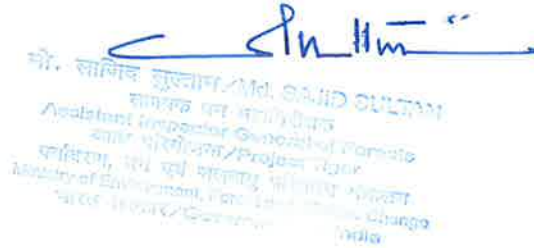 मो. साजिद सुल्तान/Md. SAJID SULTAN
सहायक वन महानिरीक्षक
Assistant Inspector General of Forests
बाघ परियोजना/Project Tiger
पर्यावरण, वन एवं जलवायु परिवर्तन मंत्रालय
Ministry of Environment, Forest Change
भारत सरकार/Government India